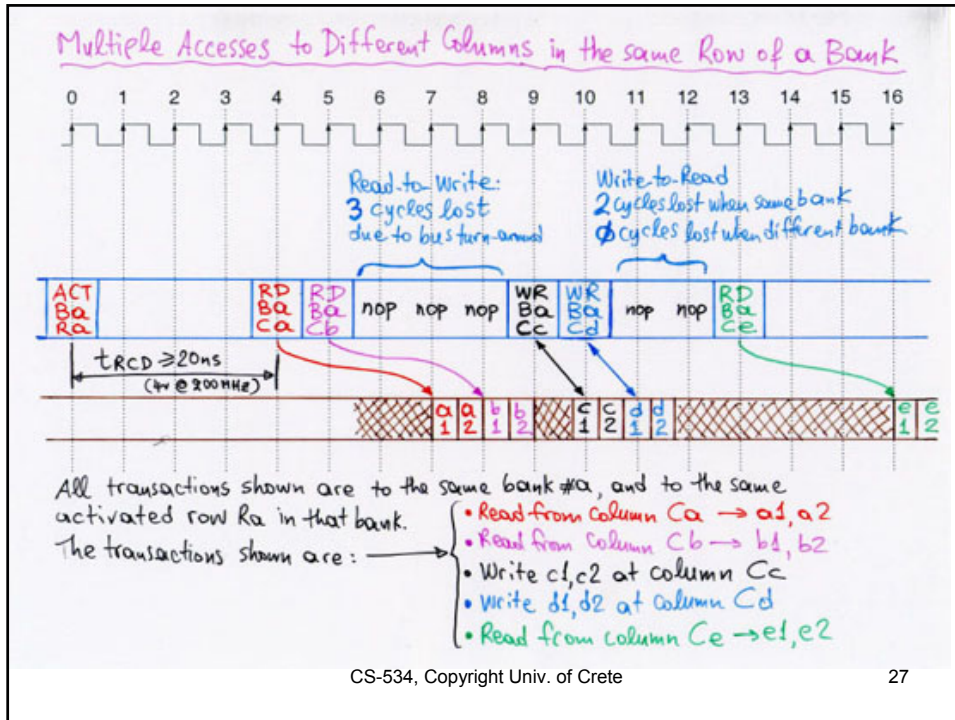 Multiple Accesses to Different Columns in the same Row of a Bank
0 1 2 3 4 5 6 7 8 9 10 11 12 13 14 15 16
Read-to-Write:
3 cycles lost
due to bus turn-around
Write-to-Read
2 cycles lost when same bank
0 cycles lost when different bank
ACT RD RD WR WR RD
Ba Ba Ba nop nop nop Ba Ba nop nop Ba
Ra Ca Cb Cc Cd Ce
tRCD ≥ 20ns
(4~ @ 200 MHz)
a a b b c c d d e e
1 2 1 2 1 2 1 2 1 2
All transactions shown are to the same bank #a, and to the same
activated row Ra in that bank.
The transactions shown are:
• Read from column Ca → a1, a2
• Read from column Cb → b1, b2
• Write c1, c2 at column Cc
• Write d1, d2 at column Cd
• Read from column Ce → e1, e2
CS-534, Copyright Univ. of Crete
27